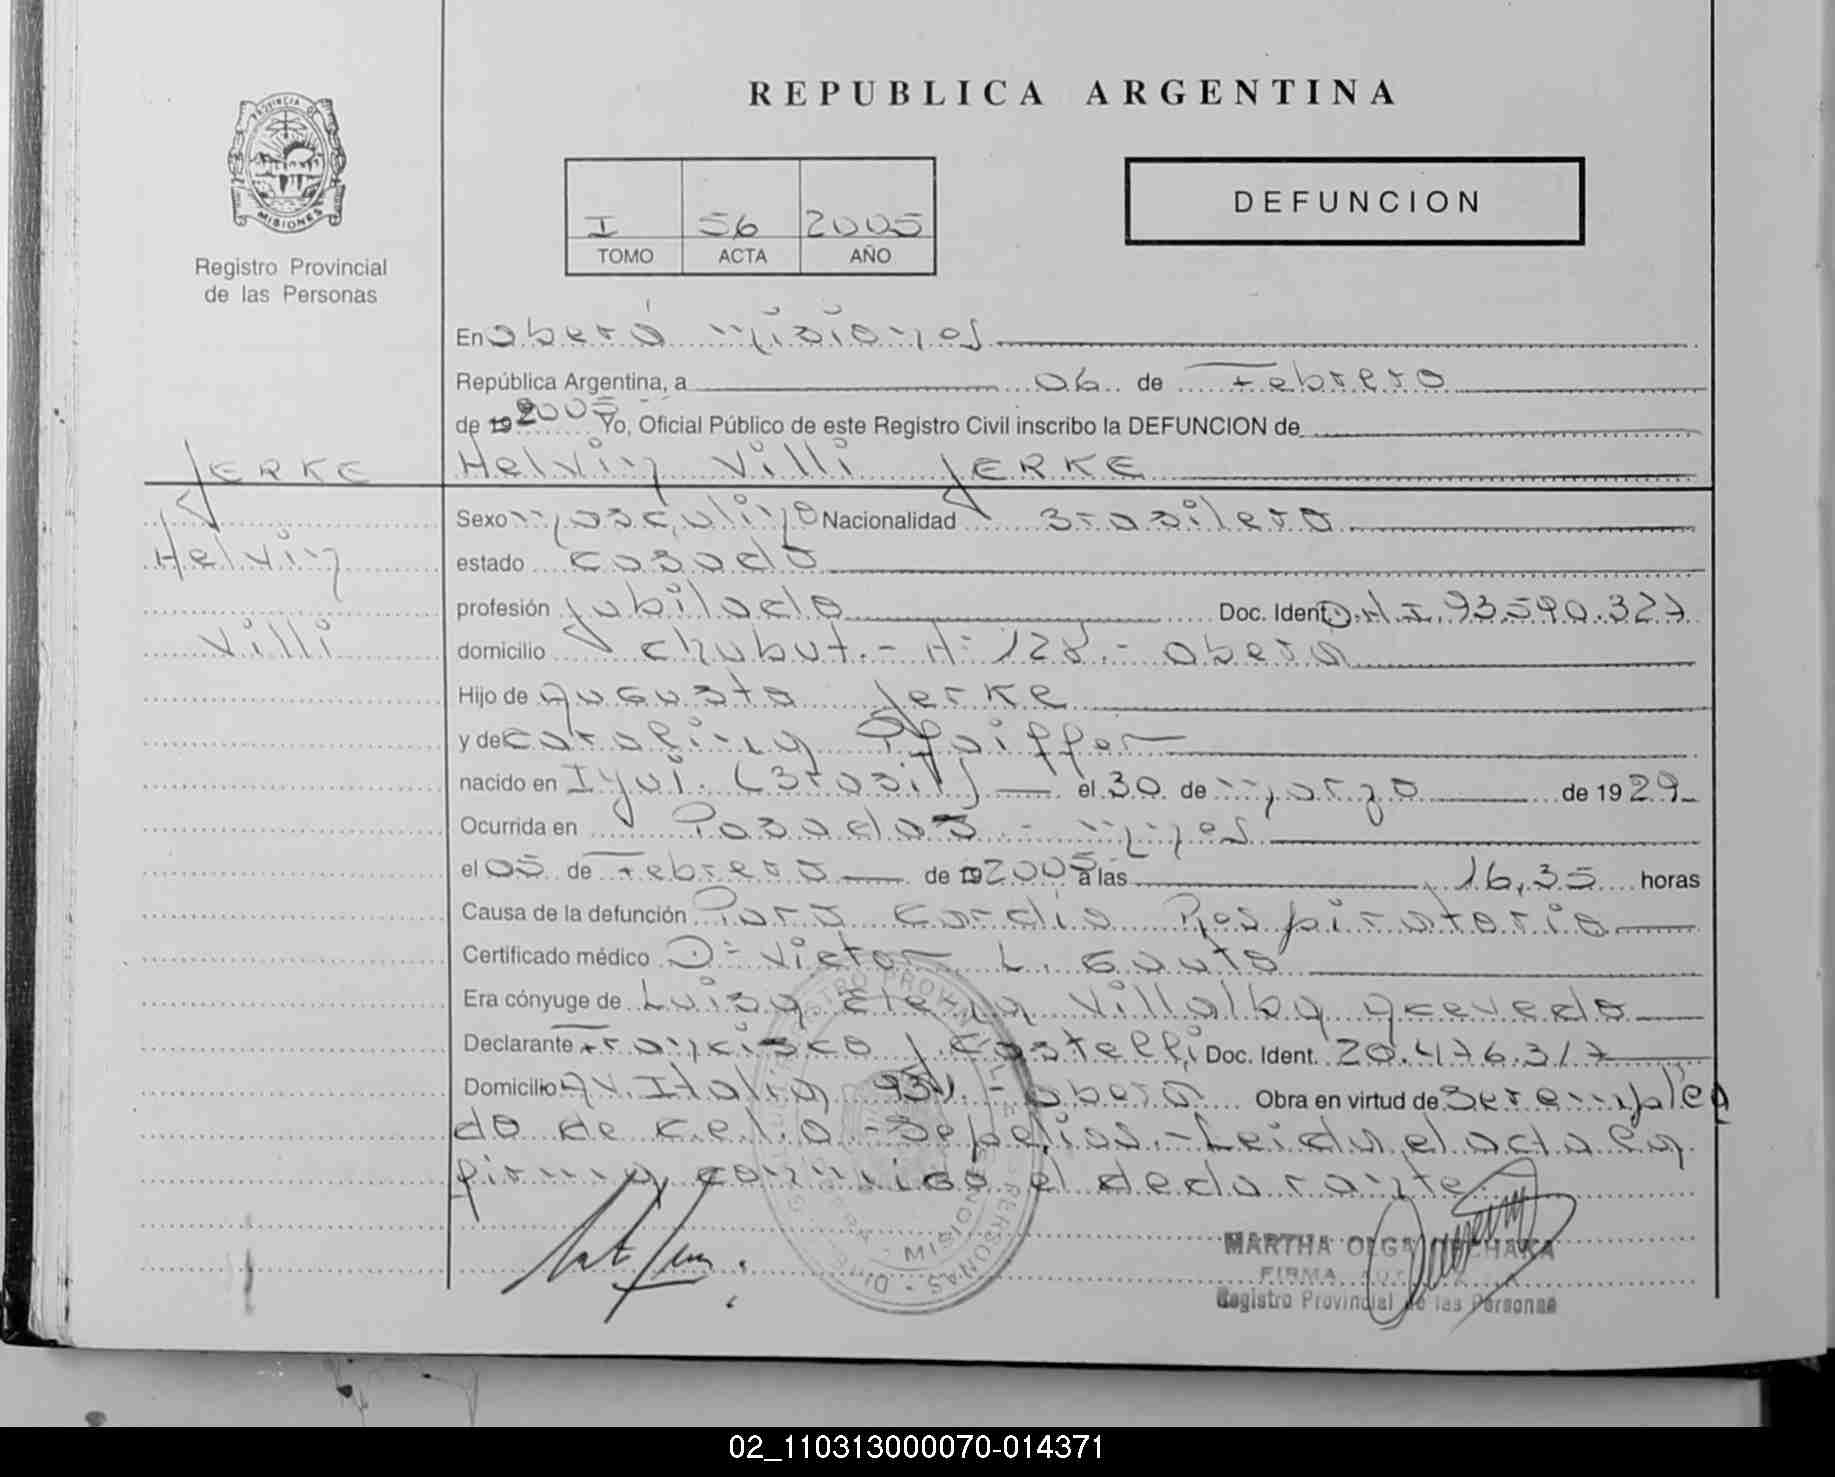 REPUBLICA ARGENTINA
PROVINCIA D
MISIONES
Registro Provincial
de las Personas
I 56 2005
TOMO ACTA AÑO
DEFUNCION
En Oberá Misiones
República Argentina, a 06 de Febrero
de 19 2005 Yo, Oficial Público de este Registro Civil inscribo la DEFUNCION de
Helvin Villi JERKE
JERKE
Helvin
Villi
Sexo Masculino Nacionalidad Brasilero
estado casado
profesión jubilado Doc. Ident. D.N.I. 93.590.327
domicilio Chubut.- Nº 128.- Oberá
Hijo de Augusto Jerke
y de Carolina Pfaiffer
nacido en Iyuí. (Brasil) el 30 de Marzo de 1929
Ocurrida en Posadas - Mnes.
el 05 de Febrero de 19 2005 a las 16,35 horas
Causa de la defunción Paro Cardio Respiratorio
Certificado médico Dr Victor L. Gauto
Era cónyuge de Luisa Elena Villalba Acevedo
Declarante Francisco J. Castelli Doc. Ident. 20.476.317
Domicilio Av. Italia 930 - Oberá Obra en virtud de Ser emplea
do de C.E.L.O - Sepelios.- Leida el acta la
firma conmigo el declarante
MARTHA OLGA
FIRMA
Registro Provincial de las Personas
02_110313000070-014371